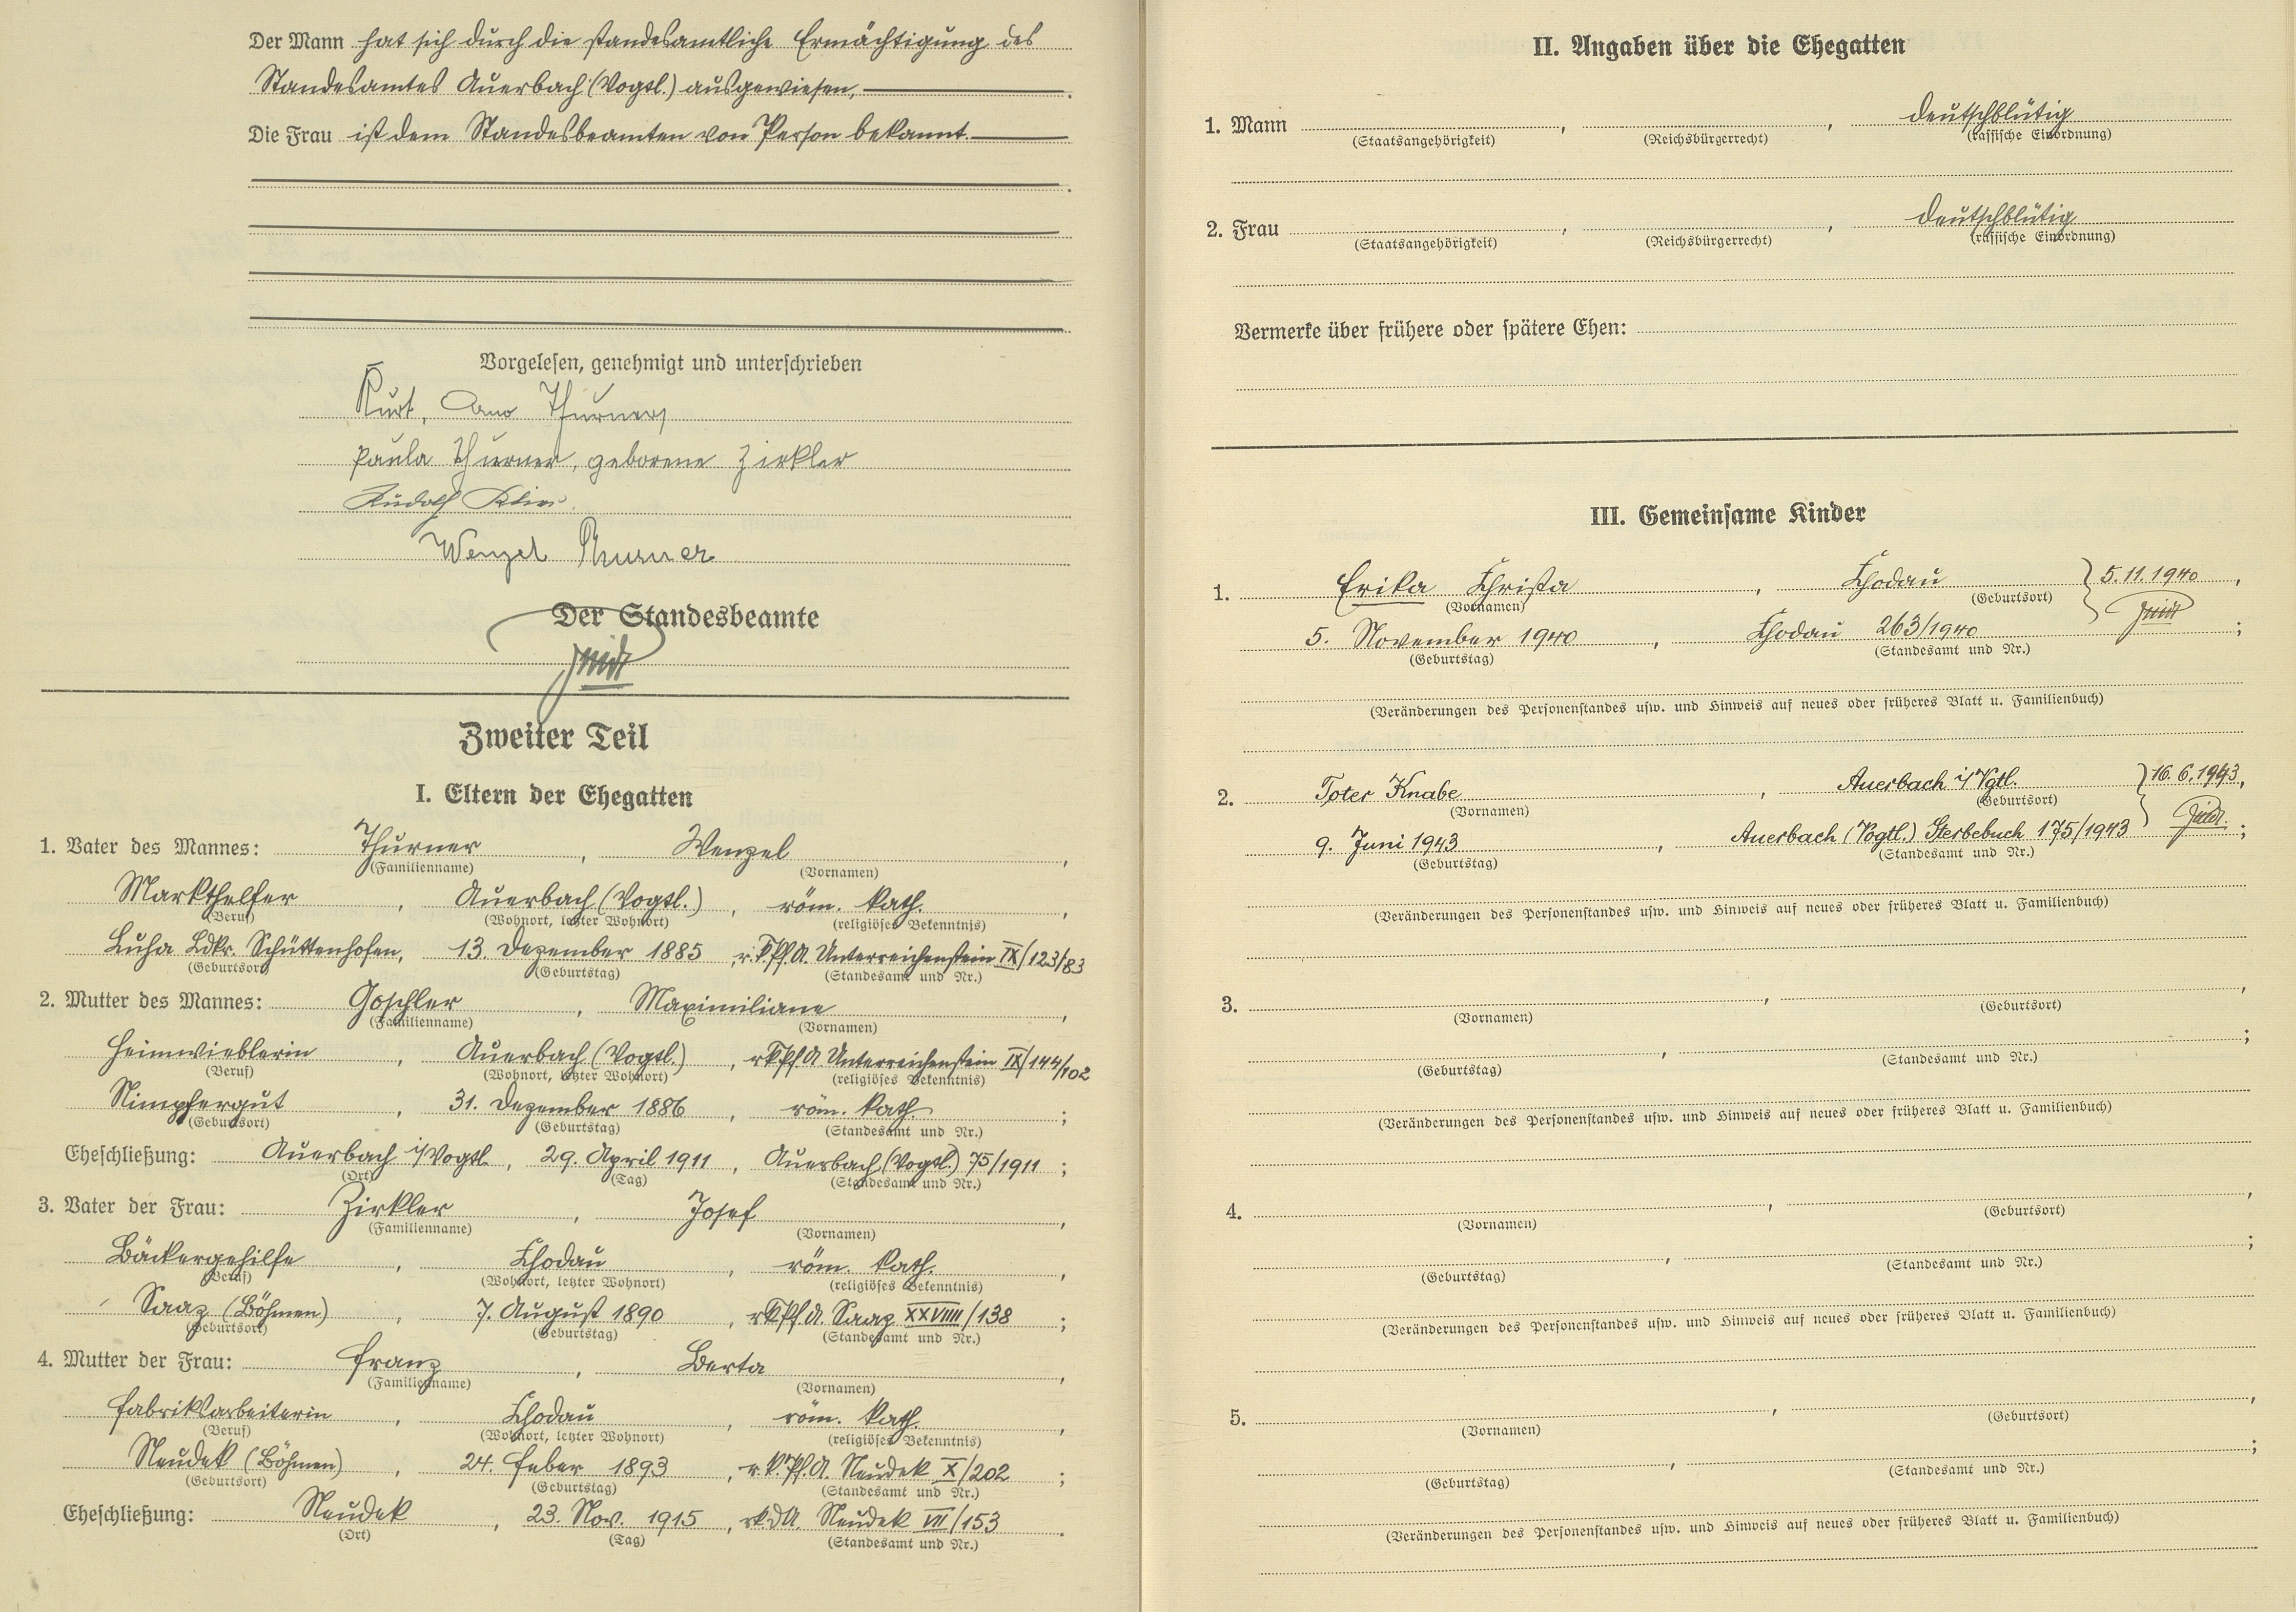 Der Mann hat sich durch die standesamtliche Ermächtigung des
Standesamtes Auerbach (Vogtl.) ausgewiesen,
Die Frau ist dem Standesbeamten von Person bekannt.
Vorgelesen, genehmigt und unterschrieben
Kurt, Arno Thurner
Paula Thurner, geborene Zirkler
Rudolf
Wenzel Thurner
Der Standesbeamte
Zweiter Teil
I. Eltern der Ehegatten
1. Vater des Mannes: Thurner, Wenzel,
(Familienname) (Vornamen)
Markthelfer, Auerbach (Vogtl.), röm. kath.,
(Beruf) (Wohnort, letzter Wohnort) (religiöses Bekenntnis)
Luha Ldkr. Schüttenhofen, 13. Dezember 1885, r.k.Pf.A. Unterreichenstein IX/123/83
(Geburtsort) (Geburtstag) (Standesamt und Nr.)
2. Mutter des Mannes: Goschler, Maximiliane,
(Familienname) (Vornamen)
Heimwieblerin, Auerbach (Vogtl.), rkPf.A. Unterreichenstein IX/144/102
(Beruf) (Wohnort, letzter Wohnort) (religiöses Bekenntnis)
Nimpfergut, 31. Dezember 1886, röm. kath.;
(Geburtsort) (Geburtstag) (Standesamt und Nr.)
Eheschließung: Auerbach i/Vogtl., 29. April 1911, Auerbach (Vogtl.) 75/1911;
(Ort) (Tag) (Standesamt und Nr.)
3. Vater der Frau: Zirkler, Josef,
(Familienname) (Vornamen)
Bäckergehilfe, Chodau, röm. kath.,
(Beruf) (Wohnort, letzter Wohnort) (religiöses Bekenntnis)
Saaz (Böhmen), 7. August 1890, rkPf.A. Saaz XXVIIII/138;
(Geburtsort) (Geburtstag) (Standesamt und Nr.)
4. Mutter der Frau: Franz, Berta,
(Familienname) (Vornamen)
Fabriksarbeiterin, Chodau, röm. kath.,
(Beruf) (Wohnort, letzter Wohnort) (religiöses Bekenntnis)
Neudek (Böhmen), 24. Feber 1893, r.k.Pf.A. Neudek X/202;
(Geburtsort) (Geburtstag) (Standesamt und Nr.)
Eheschließung: Neudek, 23. Nov. 1915, Neudek VII/153.
(Ort) (Tag) (Standesamt und Nr.)
II. Angaben über die Ehegatten
1. Mann , , deutschblütig
(Staatsangehörigkeit) (Reichsbürgerrecht) (rassische Einordnung)
2. Frau , , deutschblütig
(Staatsangehörigkeit) (Reichsbürgerrecht) (rassische Einordnung)
Vermerke über frühere oder spätere Ehen:
III. Gemeinsame Kinder
1. Erika Christa, Chodau } 5.11.1940,
(Vornamen) (Geburtsort)
5. November 1940, Chodau 263/1940;
(Geburtstag) (Standesamt und Nr.)
(Veränderungen des Personenstandes usw. und Hinweis auf neues oder früheres Blatt u. Familienbuch)
2. Toter Knabe, Auerbach i/Vgtl. } 16.6.1943,
(Vornamen) (Geburtsort)
9. Juni 1943, Auerbach (Vogtl.) Sterbebuch 175/1943;
(Geburtstag) (Standesamt und Nr.)
(Veränderungen des Personenstandes usw. und Hinweis auf neues oder früheres Blatt u. Familienbuch)
3. , ,
(Vornamen) (Geburtsort)
, ;
(Geburtstag) (Standesamt und Nr.)
(Veränderungen des Personenstandes usw. und Hinweis auf neues oder früheres Blatt u. Familienbuch)
4. , ,
(Vornamen) (Geburtsort)
, ;
(Geburtstag) (Standesamt und Nr.)
(Veränderungen des Personenstandes usw. und Hinweis auf neues oder früheres Blatt u. Familienbuch)
5. , ,
(Vornamen) (Geburtsort)
, ;
(Geburtstag) (Standesamt und Nr.)
(Veränderungen des Personenstandes usw. und Hinweis auf neues oder früheres Blatt u. Familienbuch)